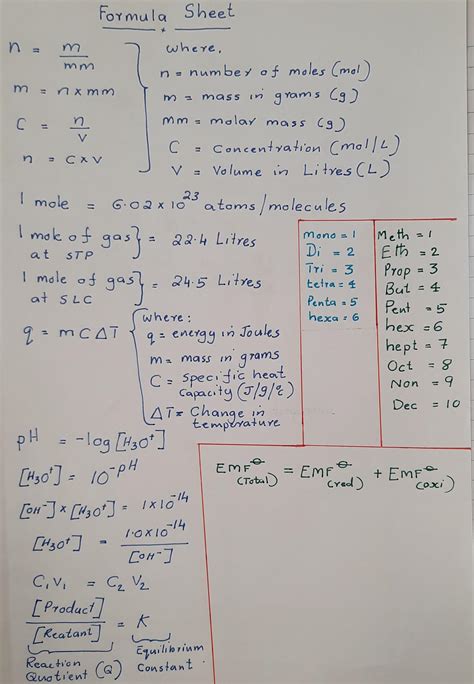 Formula Sheet
n = m/mm
m = n x mm
C = n/v
n = C x V
where,
n = number of moles (mol)
m = mass in grams (g)
mm = molar mass (g)
C = Concentration (mol/L)
V = Volume in Litres (L)
1 mole = 6.02 x 10²³ atoms/molecules
1 mole of gas at STP } = 22.4 Litres
1 mole of gas at SLC } = 24.5 Litres
q = mCΔT
where:
q = energy in Joules
m = mass in grams
C = Specific heat
capacity (J/g/°C)
ΔT = Change in
temperature
mono = 1
Di = 2
Tri = 3
tetra = 4
Penta = 5
hexa = 6
Meth = 1
Eth = 2
Prop = 3
But = 4
Pent = 5
hex = 6
hept = 7
Oct = 8
Non = 9
Dec = 10
pH = -log[H₃O⁺]
[H₃O⁺] = 10^-pH
[OH⁻] x [H₃O⁺] = 1x10⁻¹⁴
[H₃O⁺] = 1.0x10⁻¹⁴/[OH⁻]
C₁V₁ = C₂V₂
[Product]/[Reatant] = K
Reaction
Quotient (Q)
Equilibrium
Constant
EMF⦵(Total) = EMF⦵(red) + EMF⦵(oxi)